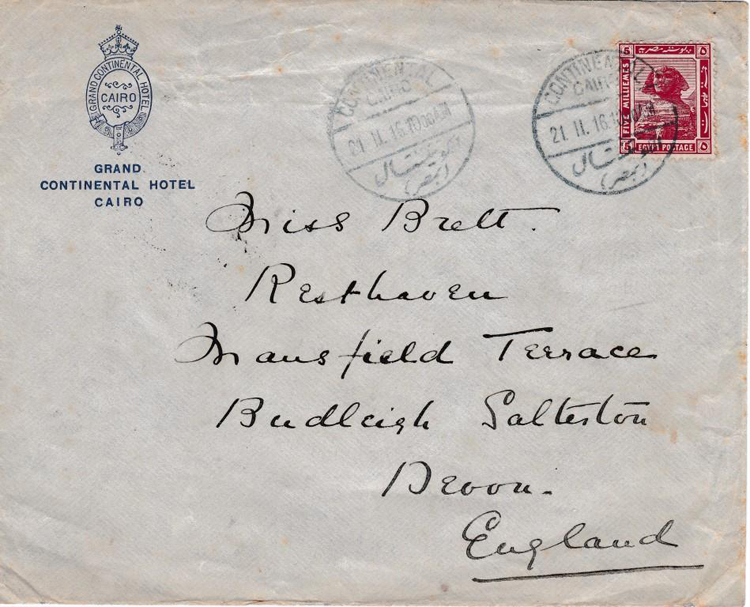 GRAND CONTINENTAL HOTEL
CAIRO
GRAND
CONTINENTAL HOTEL
CAIRO
CONTINENTAL
CAIRO
21 II. 16. 10 AM
كونتيننتال
(مصر)
CONTINENTAL
CAIRO
21 II. 16. 10
(مصر)
٥ ٥
FIVE MILLIEMES
EGYPT POSTAGE
Miss Brett.
Resthaven
Mansfield Terrace
Budleigh Salterton
Devon.
England